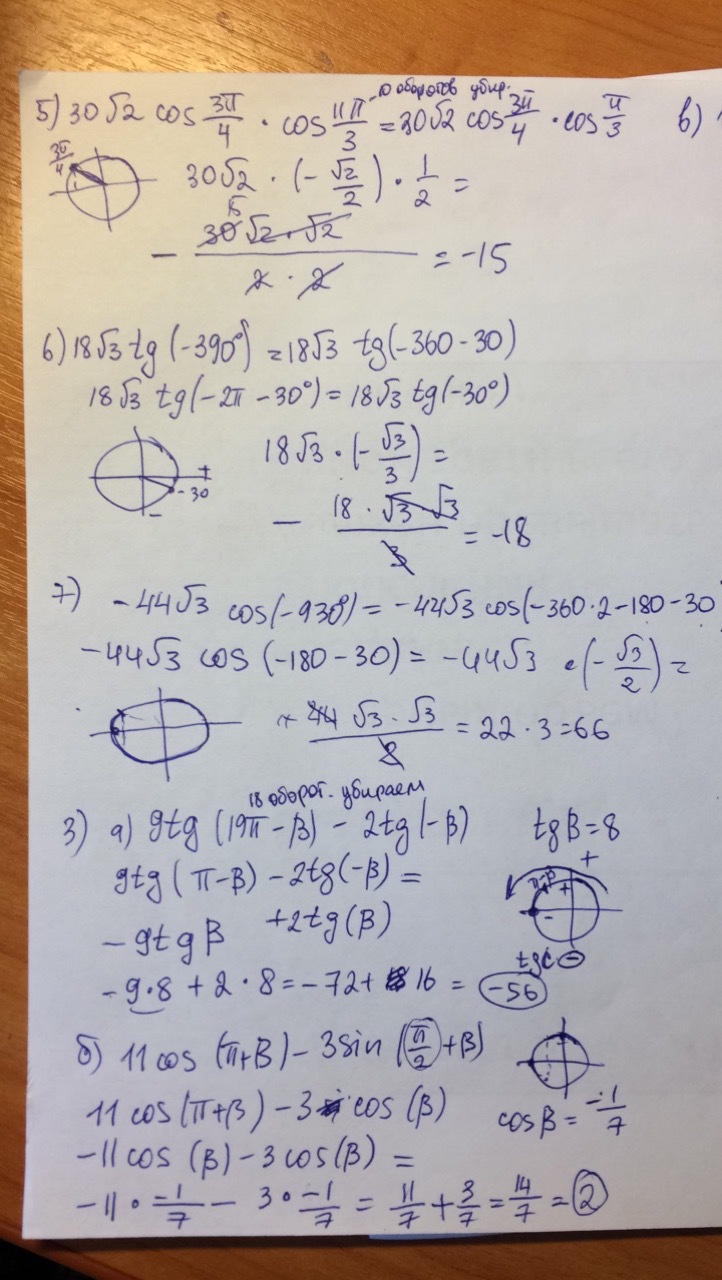 -10 оборотов убир.
5) 30√2 cos 3π/4 · cos 11π/3 = 30√2 cos 3π/4 · cos π/3 в)
3π/4
30√2 · (-√2/2) · 1/2 =
15
- 30√2 · √2 / 2 · 2 = -15
6) 18√3 tg (-390°) = 18√3 tg(-360 - 30)
18√3 tg(-2π - 30°) = 18√3 tg(-30°)
18√3 · (-√3/3) =
+
- 30
-
- 18 · √3 √3 / 3 = -18
7) -44√3 cos(-930°) = -44√3 cos(-360·2 - 180 - 30)
-44√3 cos (-180 - 30) = -44√3 · (-√3/2) =
+ 44 √3 · √3 / 2 = 22 · 3 = 66
18 оборот. убираем
3) а) 9tg (19π - β) - 2tg (-β) tg β = 8
9tg (π - β) - 2tg(-β) =
+
π-β
+
-
- 9tg β +2tg (β)
tg -
- 9·8 + 2·8 = -72 + 16 = -56
б) 11 cos (π+β) - 3 sin (π/2 + β)
11 cos(π+β) - 3 cos (β) cos β = -1/7
-11 cos (β) - 3 cos(β) =
-11 · -1/7 - 3 · -1/7 = 11/7 + 3/7 = 14/7 = 2